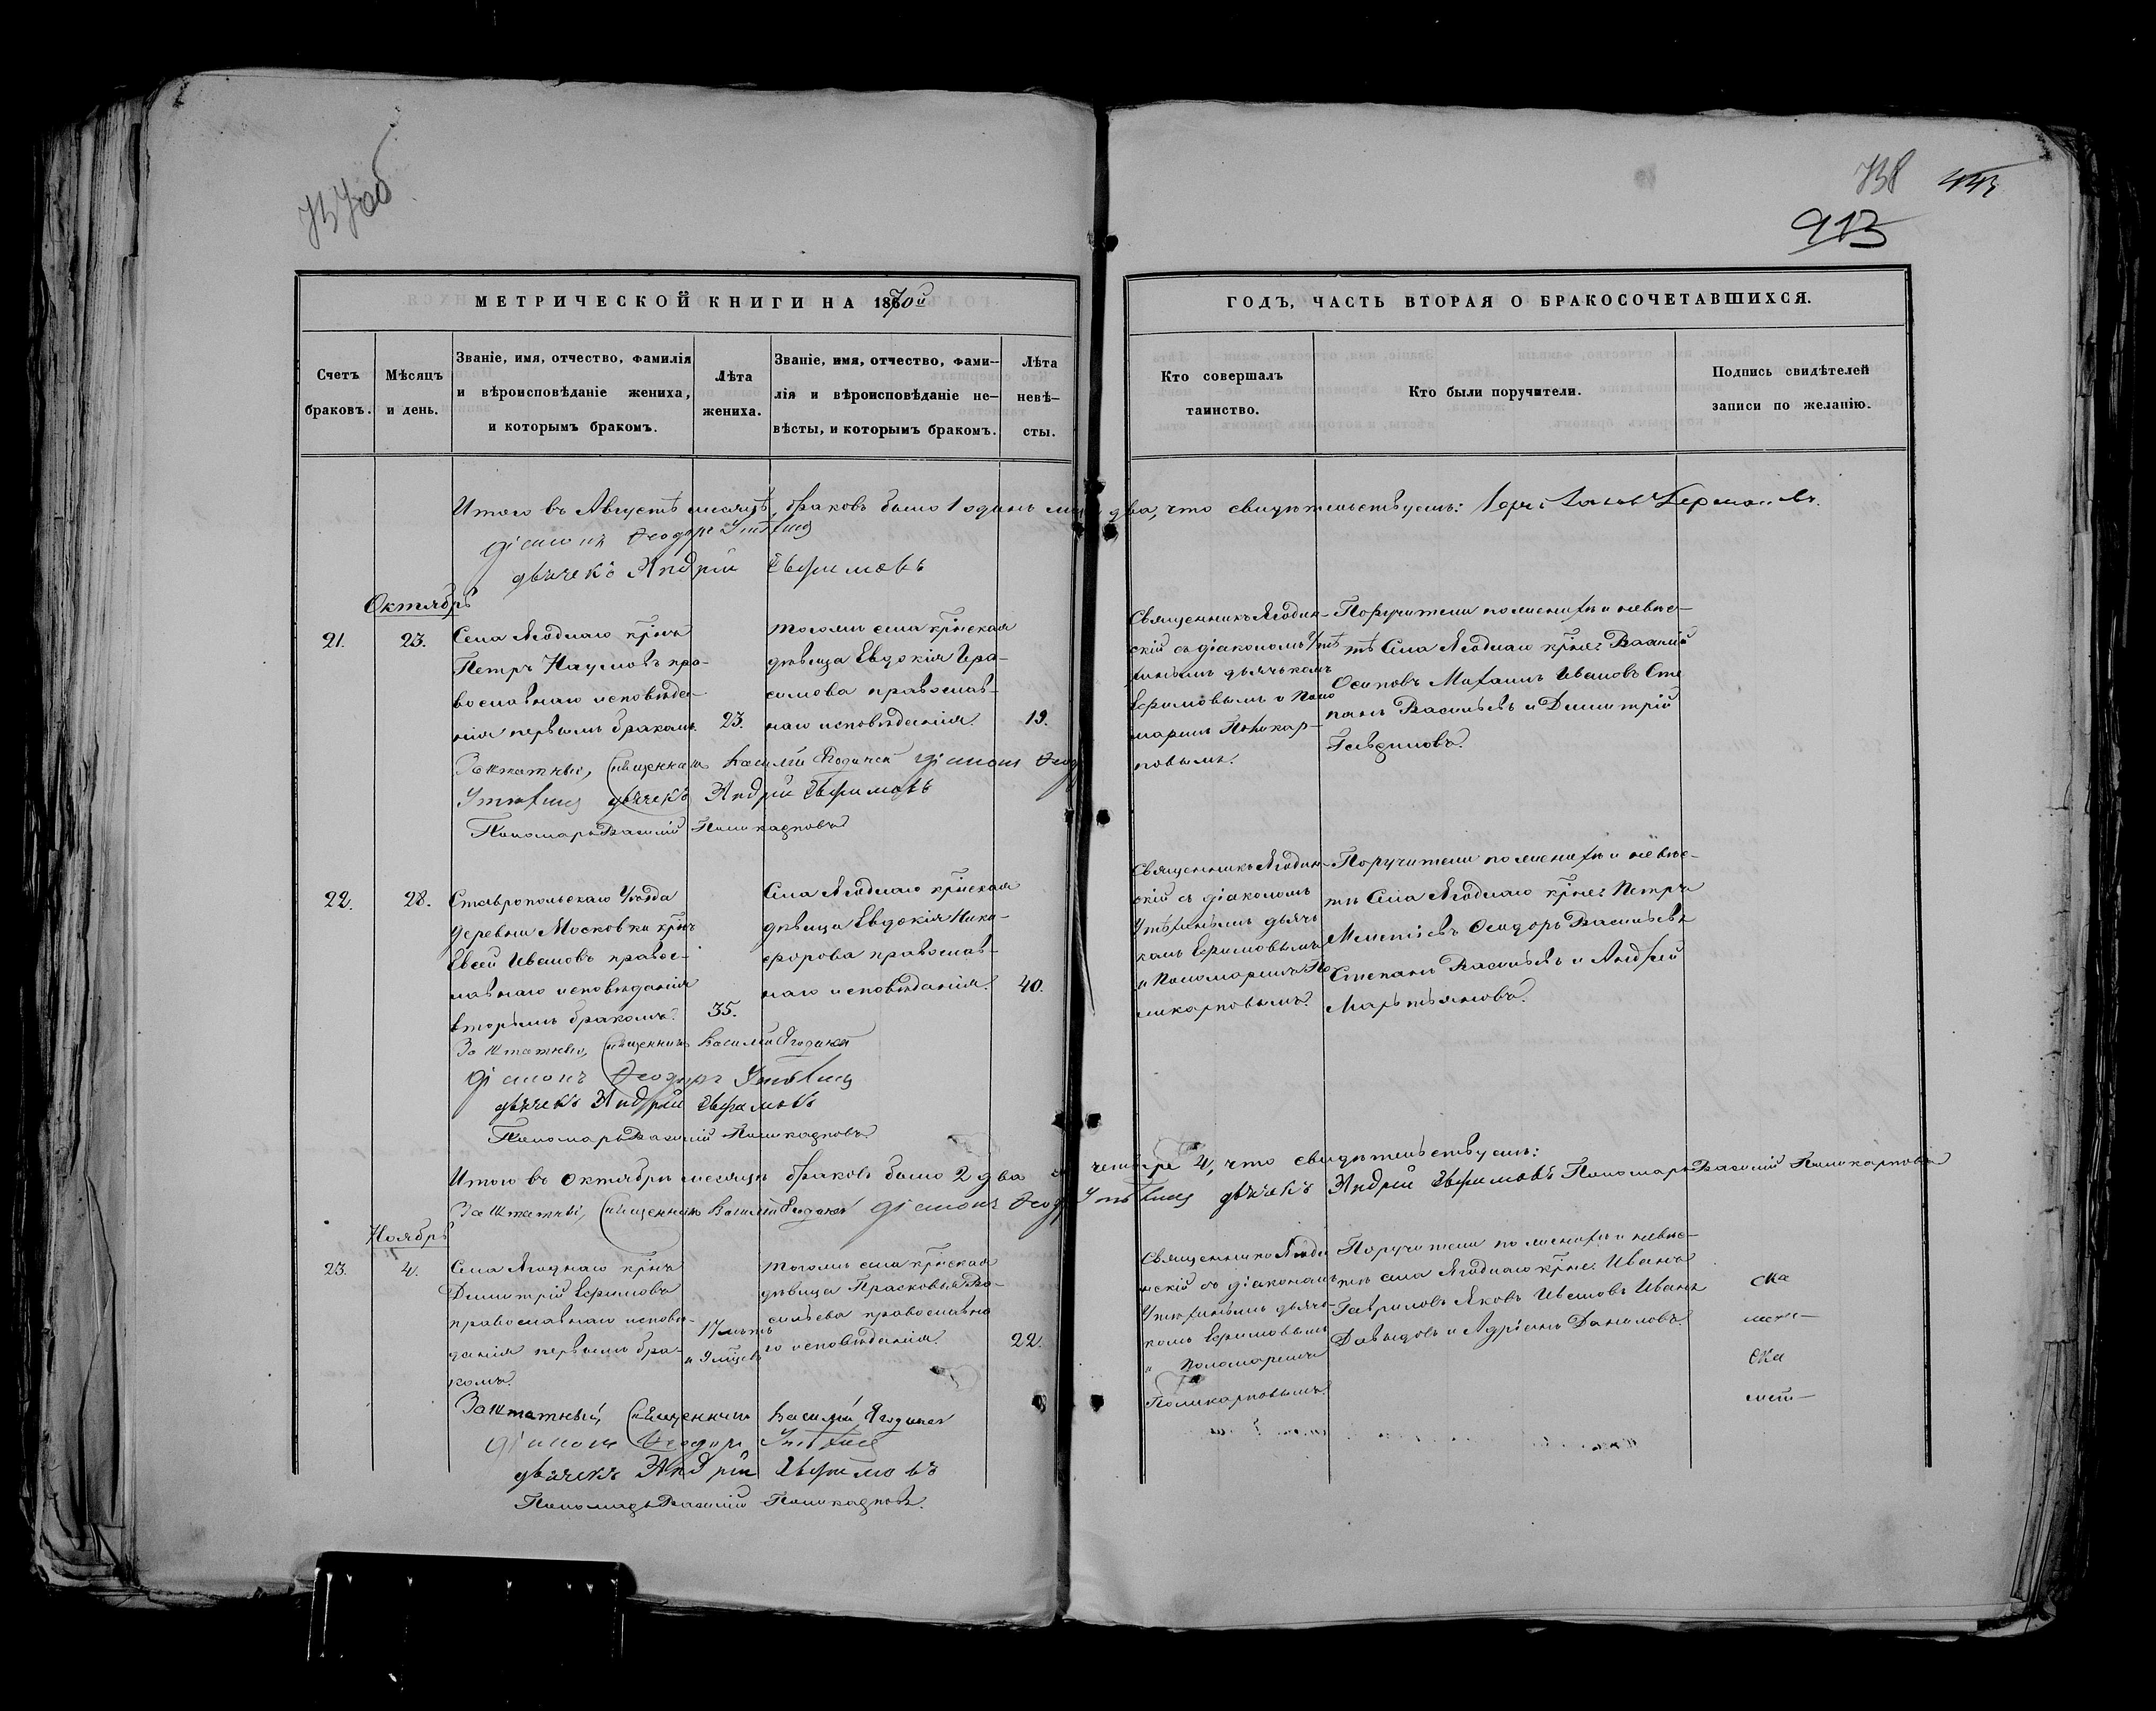 737об
738
913
МЕТРИЧЕСКОЙ КНИГИ НА 1870й
ГОДЪ, ЧАСТЬ ВТОРАЯ О БРАКОСОЧЕТАВШИХСЯ.
Счетъ
браковъ.
Мѣсяцъ
и день.
Званіе, имя, отчество, фамилія
и вѣроисповѣданіе жениха,
и которымъ бракомъ.
Лѣта
жениха.
Званіе, имя, отчество, фами-
лія и вѣроисповѣданіе не-
вѣсты, и которымъ бракомъ.
Лѣта
невѣ-
сты.
Кто совершалъ
таинство.
Кто были поручители.
Подпись свидѣтелей
записи по желанію.
Итого въ Августѣ месяцѣ, браковъ было 1 одинъ два, что свидѣтельствуемъ:
Діаконъ Ѳеодоръ
дьячекъ Андрей Ефимовъ
Октябрь
21.
23.
Села Ягоднаго кр̃нъ
Петръ Наумовъ пра-
вославнаго исповѣда-
нія первымъ бракомъ.
23.
тогожъ села кр̃нская
дѣвица Евдокія Гера-
симова православ-
наго исповѣданія.
19.
Священникъ Ягодин-
скій съ діакономъ
дьячькомъ
Ефимовымъ и Поно
маремъ Поликар-
повымъ.
Поручители по женихѣ и невѣс-
тѣ Села Ягоднаго кр̃не: Василій
Осиповъ Михаилъ Ивановъ Сте
панъ Васильевъ и Димитрій
Заштатный, Священникъ Василій Ягодинскій Діаконъ
дьячекъ Андрей Ефимовъ
Пономарь Василій Поликарповъ
22.
28.
Ставропольскаго Уѣзда
деревни Московки кр̃нъ
Евсей Ивановъ правос-
лавнаго исповѣданія
вторымъ бракомъ.
35.
Села Ягоднаго кр̃нская
дѣвица Евдокія Ники-
форова православ-
наго исповѣданія.
40.
Священникъ Ягодин-
скій съ діакономъ
дьячь
комъ Ефимовымъ
и Пономаремъ По
ликарповымъ.
Поручители по женихѣ и невѣс-
тѣ Села Ягоднаго кр̃не: Петръ
Мелетіевъ Ѳеодоръ Васильевъ
Степанъ Васильевъ и Андрей
Мартьяновъ.
Заштатный, Священникъ Василій Ягодинскій
Діаконъ Ѳеодоръ
дьячекъ Андрей Ефимовъ
Пономарь Василій Поликарповъ.
Итого въ Октябрѣ месяцѣ браковъ было 2 два четыре 4, что свидѣтельствуемъ:
Заштатный, Священникъ Василій Ягодинскій Діаконъ дьячекъ Андрей Ефимовъ Пономарь Василій Поликарповъ
Ноябрь
23.
4.
Села Ягоднаго кр̃нъ
Димитрій Ефимовъ
православнаго исповѣ-
данія первымъ бра-
комъ.
17 лѣтъ
тогожъ села кр̃нская
дѣвица Прасковья Ва-
сильева православна
го исповѣданія.
22.
Священникъ Ягоди
нскій съ діакономъ
дьячь-
комъ Ефимовымъ
и Пономаремъ
Поликарповымъ.
Поручители по женихѣ и невѣс-
тѣ села Ягоднаго кр̃не: Иванъ
Гавриловъ Яковъ Ивановъ Иванъ
Давыдовъ и Адріанъ Даниловъ.
Заштатный, Священникъ Василій Ягодинскій
Діаконъ Ѳеодоръ
дьячекъ Андрей Ефимовъ
Пономарь Василій Поликарповъ.